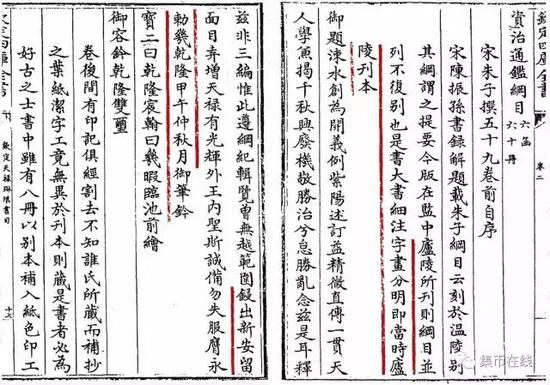 欽定四庫全書
卷二
資治通鑑綱目 六函 六十冊
宋朱子撰五十九卷前自序
宋陳振孫書録解題載朱子綱目云刻於温陵别
其綱謂之提要今版在監中廬陵所刊則綱目並
列不復别也是書大書細注字畫分明即當時廬
陵刊本
御題涑水創為開義例紫陽述訂益精微直傳一貫天
人學兼揭千秋興廢機敬勝治兮怠勝亂念兹是耳釋
兹非三編惟此遵綱紀輯覽曽無越範圍鋟出新安留
面目弆增天禄有光輝外王内聖斯誠備勿失服膺永
勅幾乾隆甲午仲秋月御筆鈐
寶二曰乾隆宸翰曰幾暇臨池前繪
御容鈐乾隆雙璽
卷後間有印記俱經割去不知誰氏所藏而補抄
之葉紙潔字工竟無異於刊本則藏是書者必為
好古之士書中雖有八冊以别本補入紙色印工
欽定天禄琳琅書目
集币在线